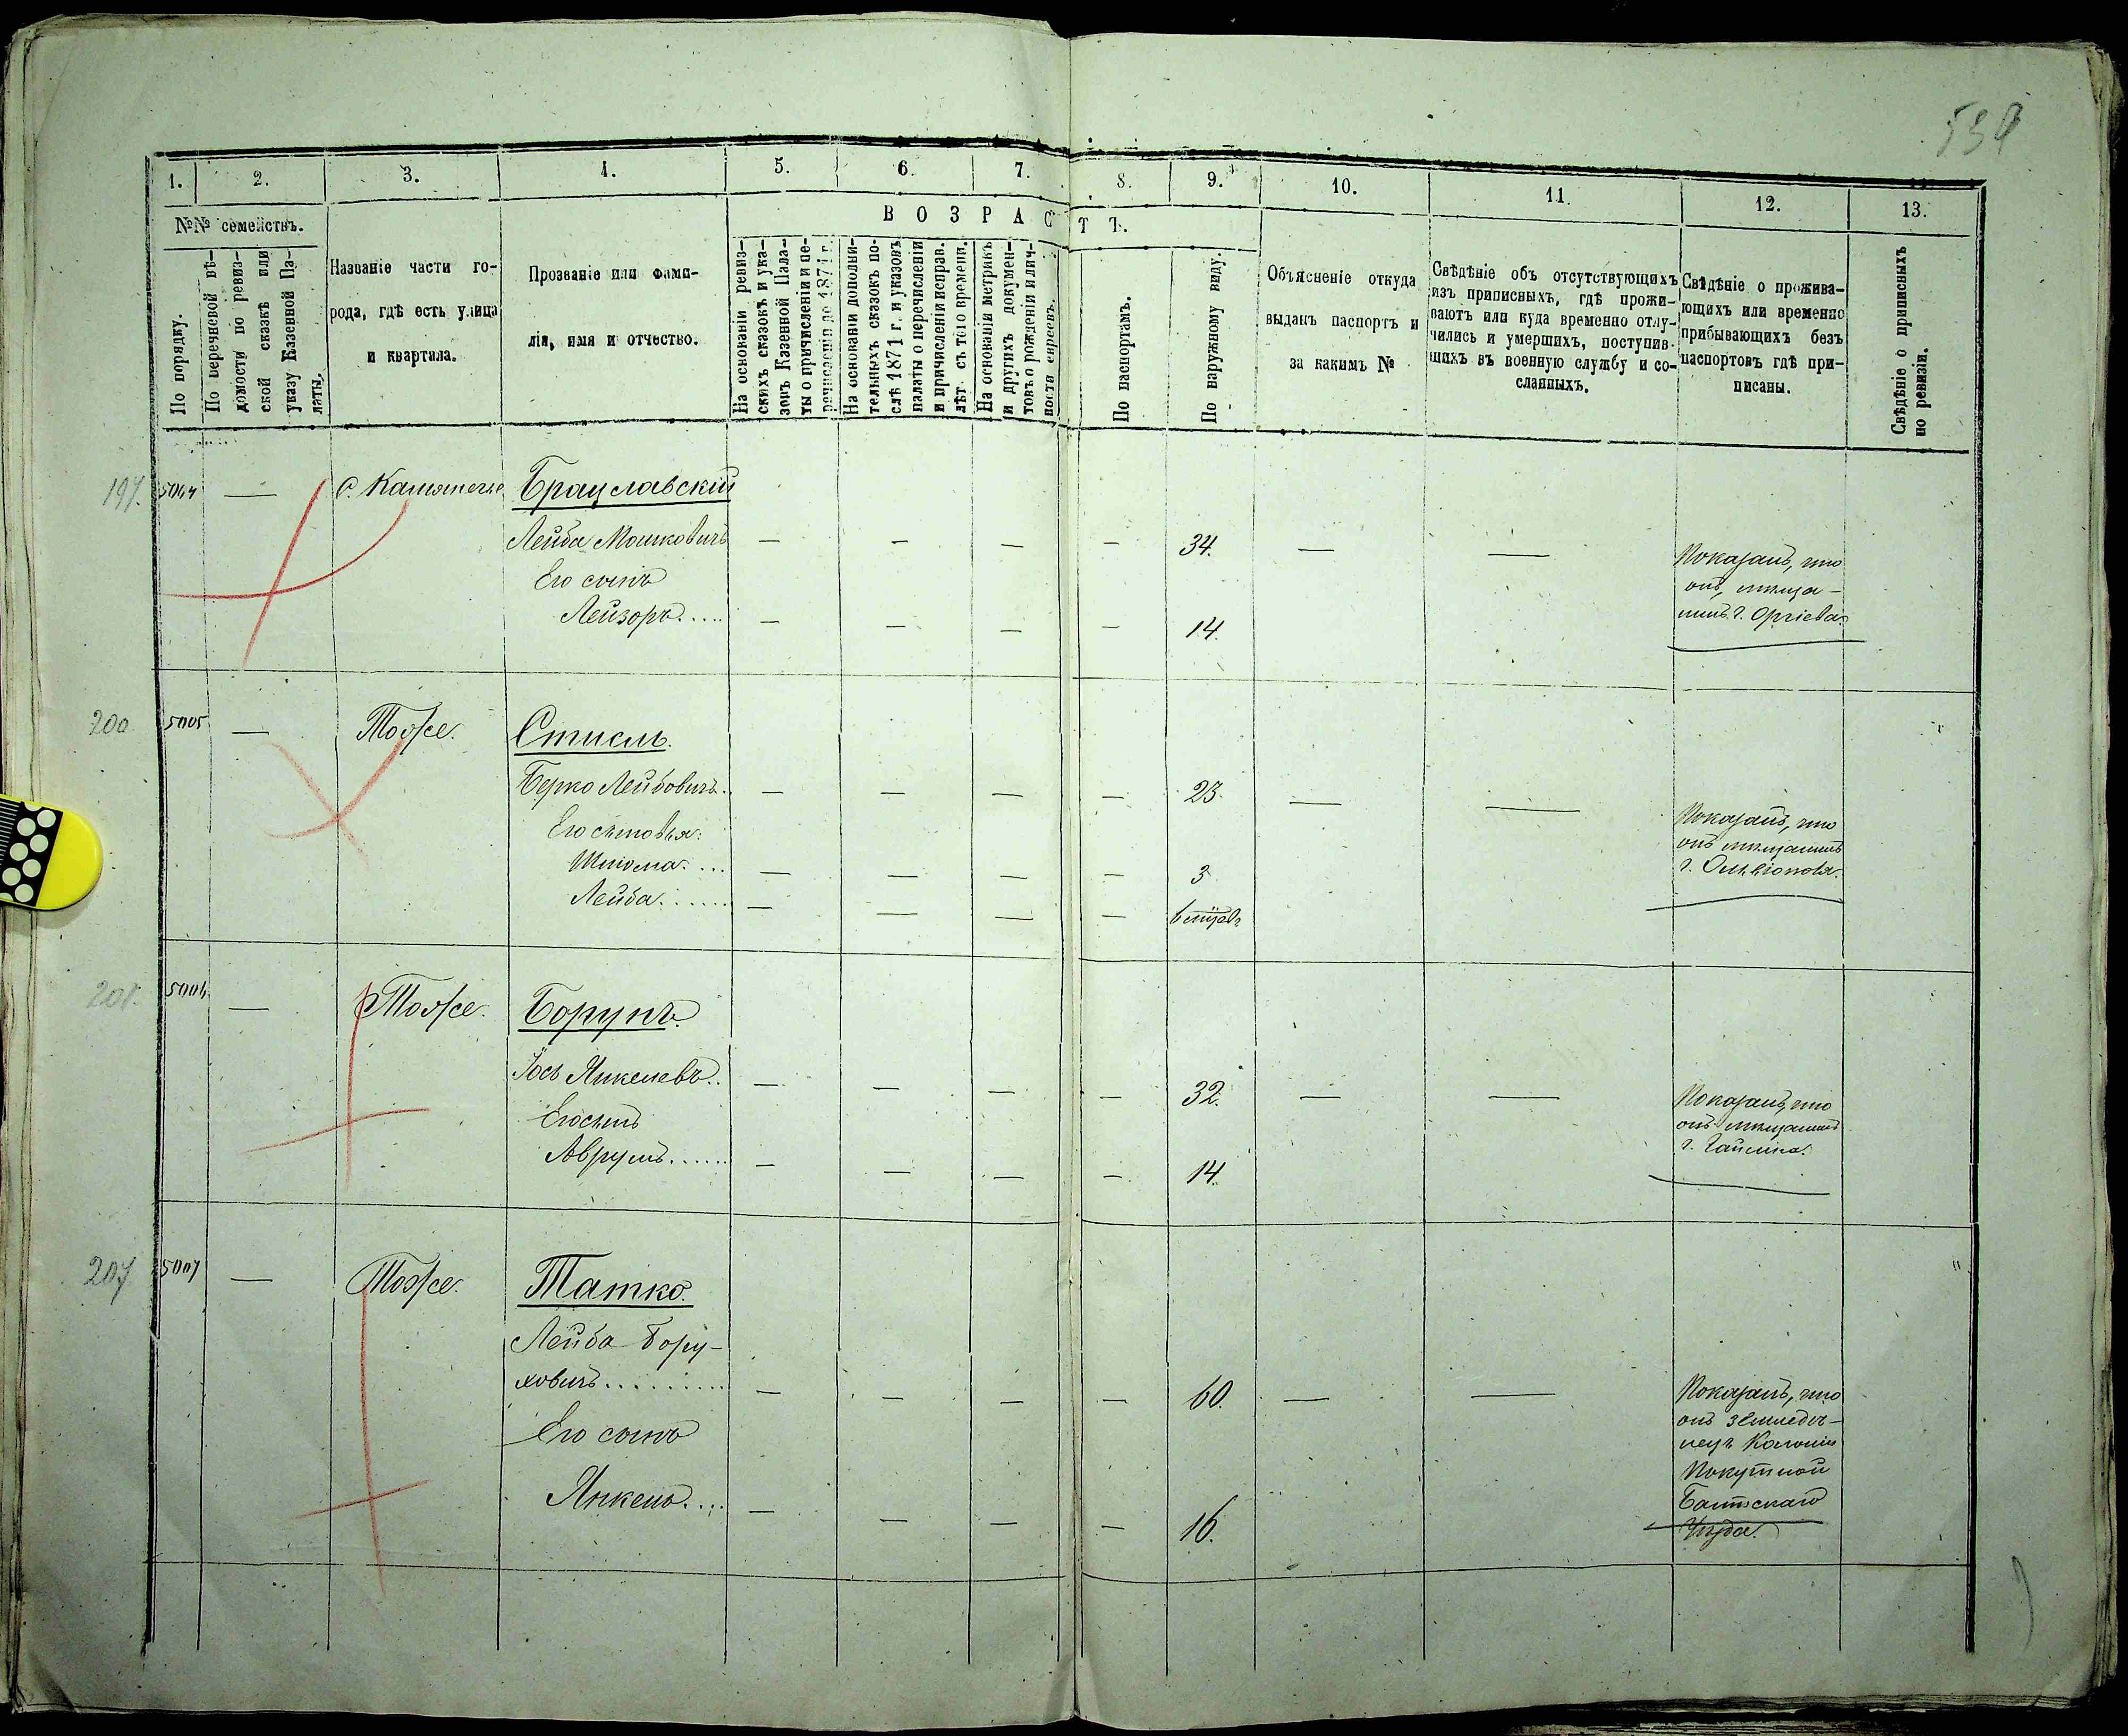 1. 2. 3. 4. 5. 6. 7. 8. 9. 10. 11. 12. 13.
№№ семействъ.
По порядку.
По перечневой вѣ-
домости по ревиз-
ской сказкѣ или
указу Казенной Па-
латы.
Названіе части го-
рода, гдѣ есть улица
и квартала.
Прозваніе или фами-
лія, имя и отчество.
ВОЗРАСТЪ.
На основаніи ревиз-
скихъ сказокъ и ука-
зовъ Казенной Пала-
ты о причисленіи и пе-
речисленіи до 1871 г.
На основаніи дополни-
тельныхъ сказокъ по-
слѣ 1871 г. и указовъ
палаты о перечисленіи
и причисленіи исправ.
лѣт съ того времени.
На основаніи метрикъ
и другихъ докумен-
товъ о рожденіи и лич-
ности евреевъ.
По паспортамъ.
По наружному виду.
Объясненіе откуда
выданъ паспортъ и
за какимъ №
Свѣдѣніе объ отсутствующихъ
изъ приписныхъ, гдѣ прожи-
ваютъ или куда временно отлу-
чились и умершихъ, поступив-
шихъ въ военную службу и со-
сланныхъ.
Свѣдѣніе о прожива-
ющихъ или временно
прибывающихъ безъ
паспортовъ гдѣ при-
писаны.
Свѣдѣніе о приписныхъ
по ревизіи.
с. Брацлавскій
Лейба Мошковичъ — — — — 34. — —
Его сынъ
Лейзоръ..... — — — — 14.
Показалъ, что
онъ, мѣща-
нинъ г. Оргіева.
200 5005 — Тоже. Стисль.
Берко Лейбовичъ. — — — — 23. — —
Его сыновья:
Шліома... — — — — 3
Лейба...... — — — — 6 мѣсяц.
Показалъ, что
онъ мѣщанинъ
г. Ольвіополя.
201. 5006 — Тоже. Борухъ.
Іось Янкелевъ.. — — — — 32. — —
Его сынъ
Аврумъ...... — — — — 14.
Показалъ, что
онъ мѣщанинъ
г. Гайсина.
207 5007 — Тоже. Татко.
Лейба Бору-
ховичъ......... — — — — 60. — —
Его сынъ
Янкель.... — — — — 16.
Показалъ, что
онъ земледѣ-
лецъ Колоніи
Покутной
Балтскаго
Уѣзда.